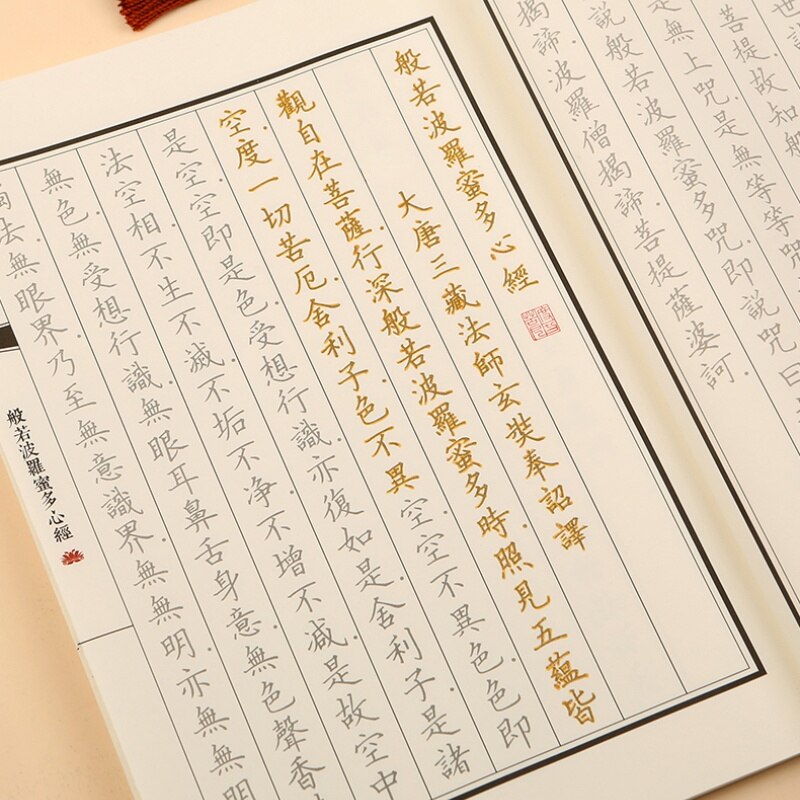 菩提故知般
是無上咒是無等等咒
說般若波羅蜜多咒即說咒曰
揭諦波羅僧揭諦菩提薩婆訶
般若波羅蜜多心經
大唐三藏法師玄奘奉詔譯
觀自在菩薩行深般若波羅蜜多時照見五蘊皆
空度一切苦厄舍利子色不異空空不異色色即
是空空即是色受想行識亦復如是舍利子是諸
法空相不生不滅不垢不净不增不减是故空中
無色無受想行識無眼耳鼻舌身意無色聲香
法無眼界乃至無意識界無無明亦無無明
般若波羅蜜多心經